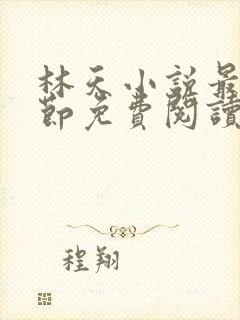 林天小說最
節免費閱讀
程翔